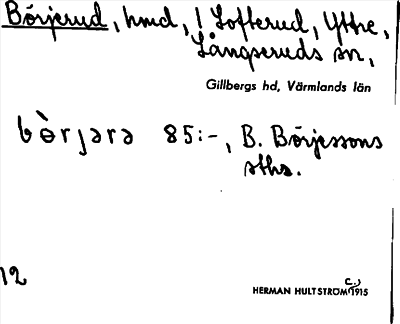 Börjerud, hmd, / Lofterud, Yttre,
Långseruds sn,
Gillbergs hd, Värmlands län
bòrjərə 85:-, B. Börjessons
sths.
12
HERMAN HULTSTRÖM c.) 1915